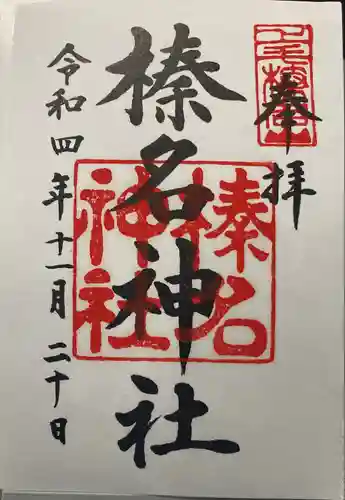 奉拝
榛名神社
令和四年十一月二十日
榛名
神社